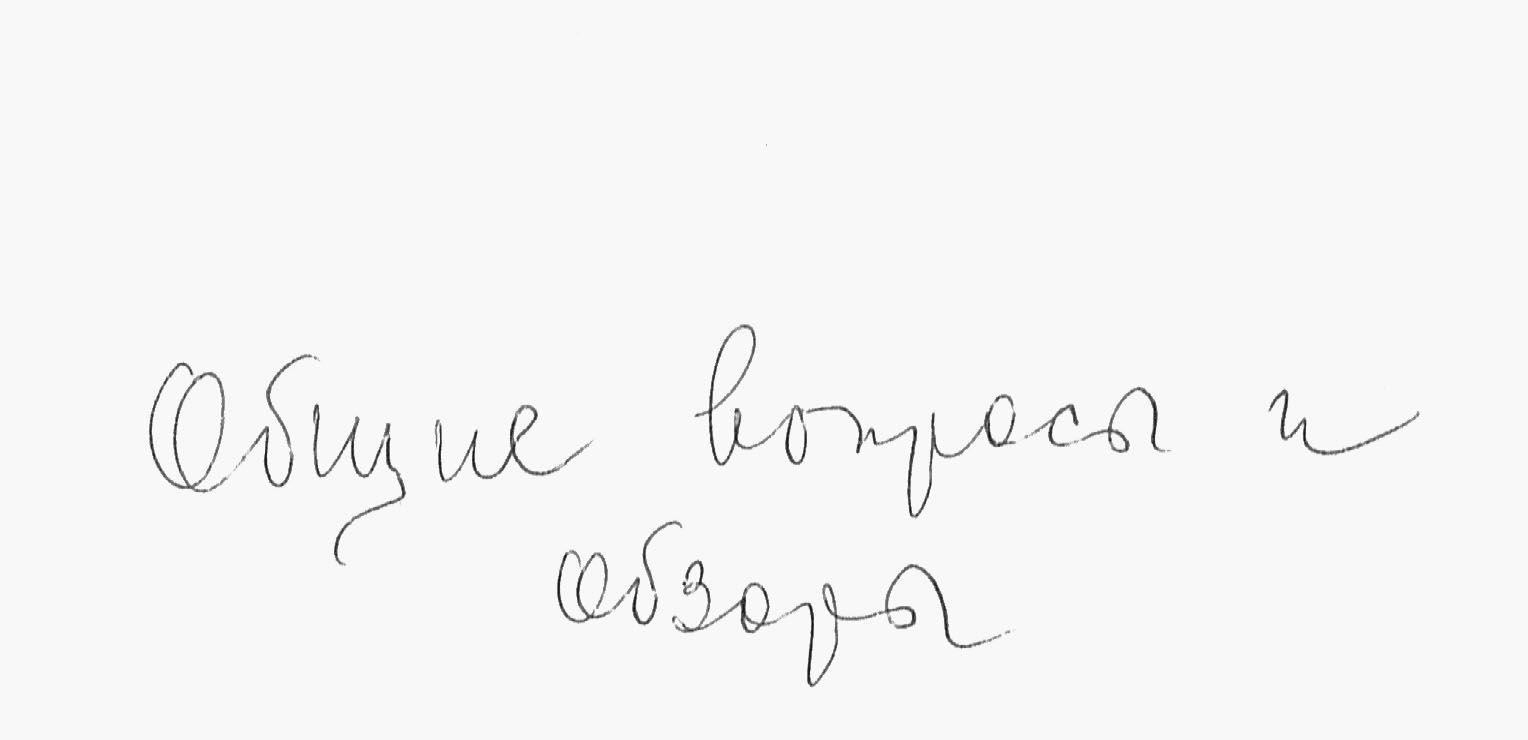 Общие вопросы и
обзоры